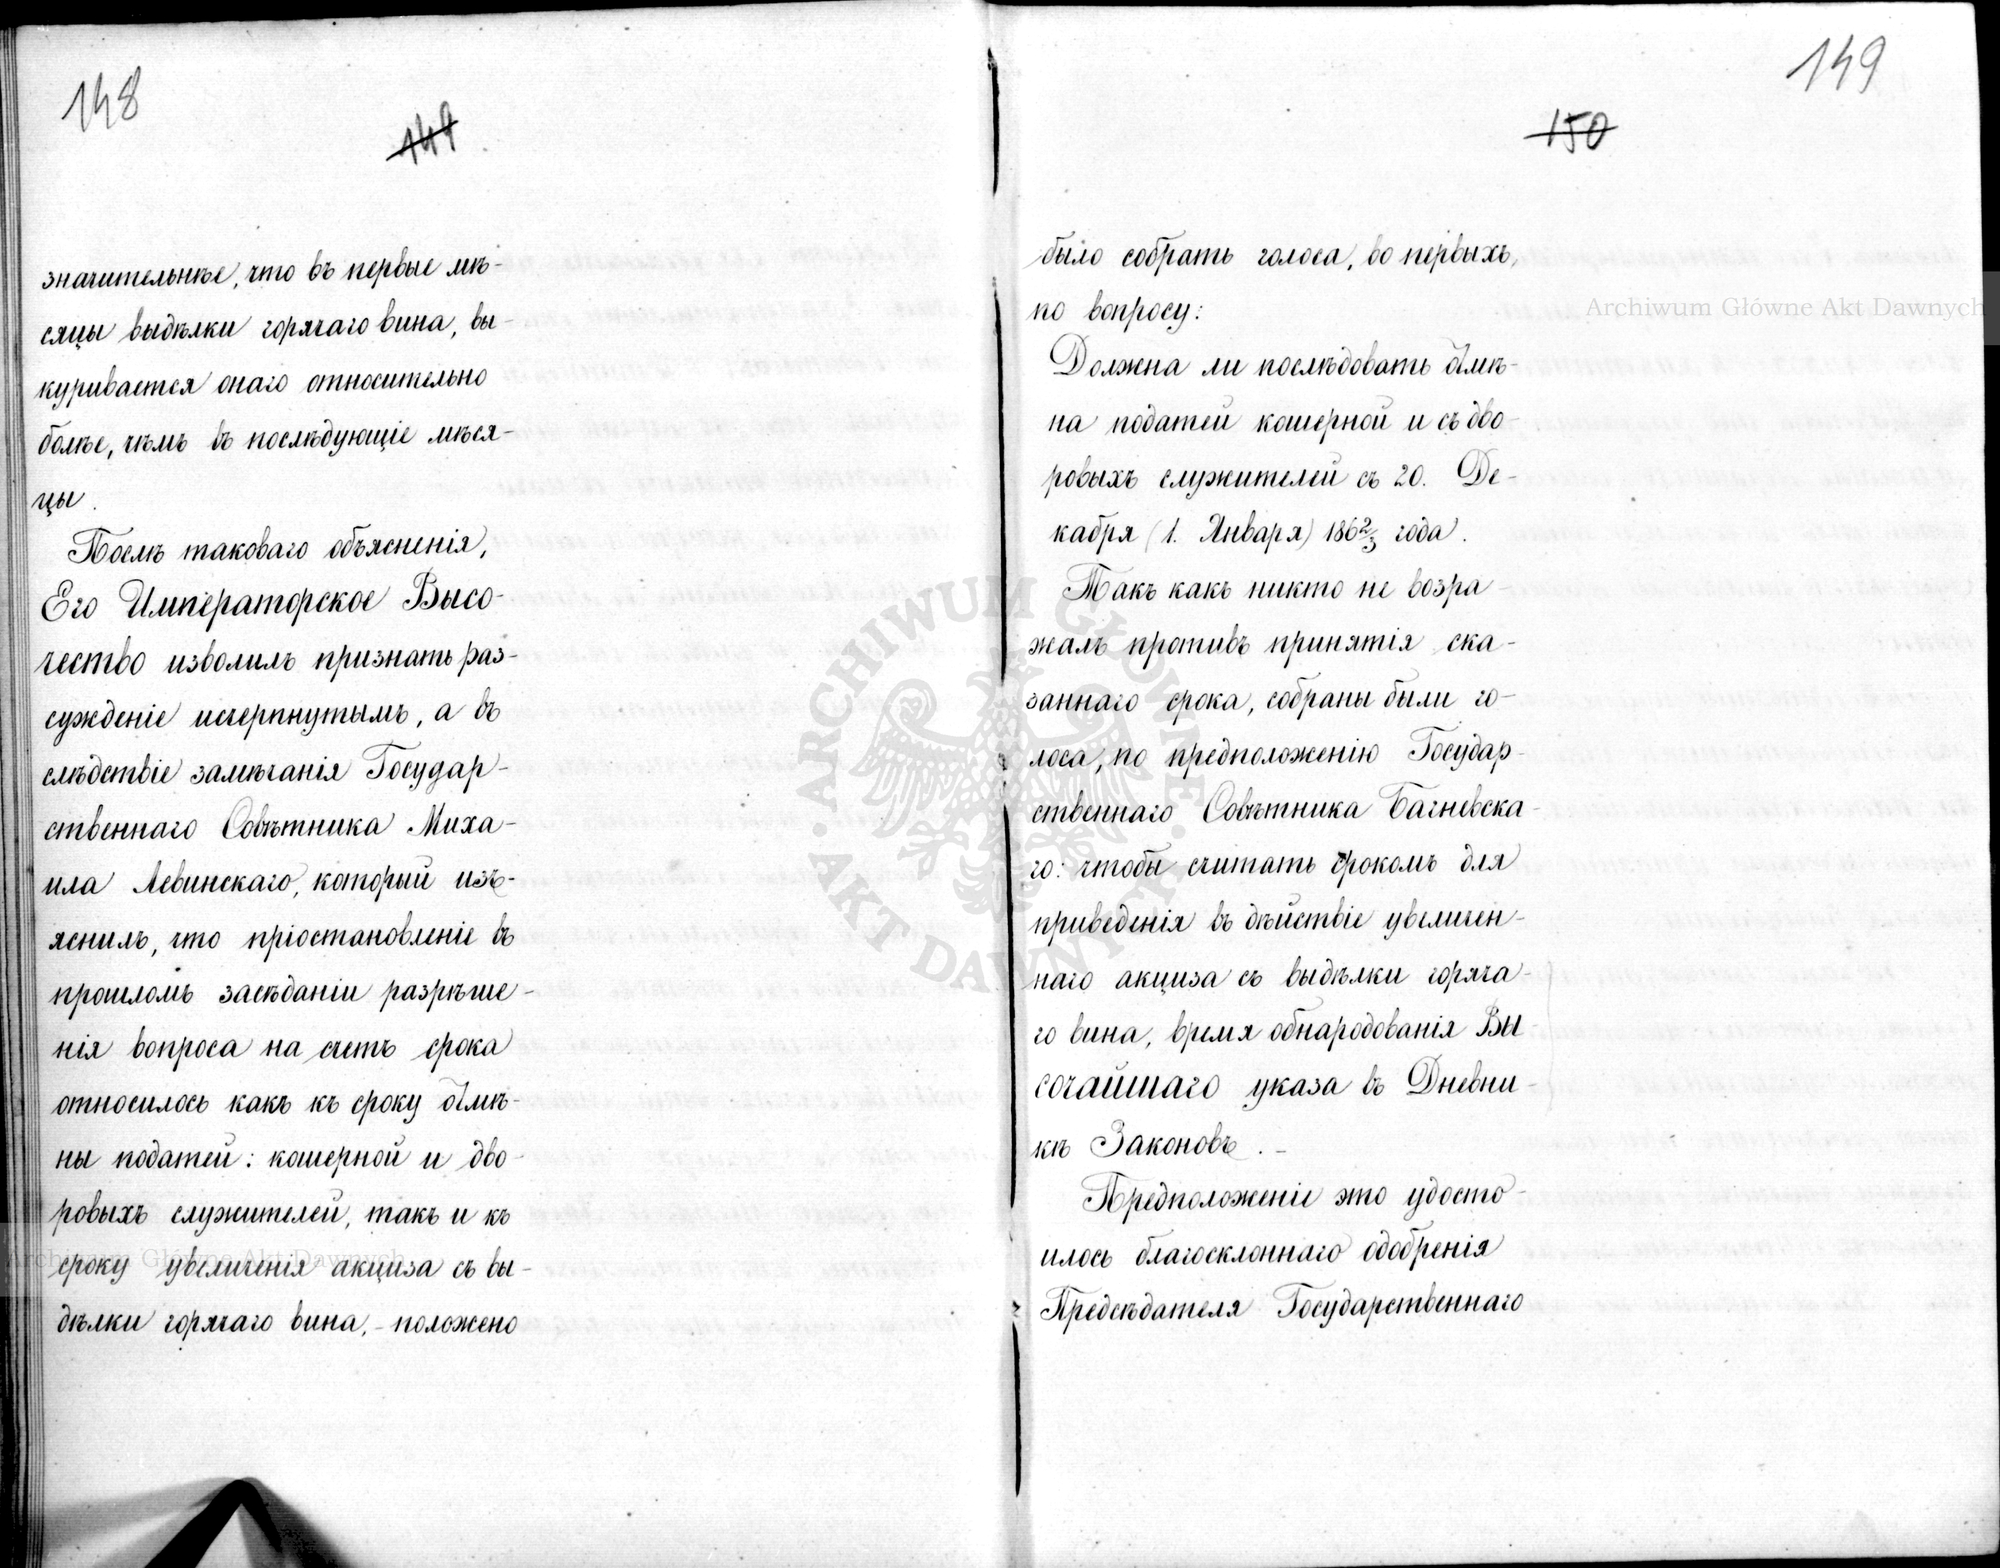 148
149
значительнѣе, что въ первые мѣ-
сяцы выдѣлки горячаго вина, вы-
куривается онаго относительно
болѣе, чѣмъ въ послѣдующіе мѣся-
цы.
Послѣ таковаго объясненія,
Его Императорское Высо-
чество изволилъ признать раз-
сужденіе исчерпнутымъ, а въ
слѣдствіе замѣчанія Государ-
ственнаго Совѣтника Миха-
ила Левинскаго, который изъ-
яснилъ, что пріостановленіе въ
прошломъ засѣданіи разрѣше-
нія вопроса на счетъ срока
относилось какъ къ сроку отмѣ-
ны податей: кошерной и дво-
ровыхъ служителей, такъ и къ
сроку увеличенія акциза съ вы-
дѣлки горячаго вина, - положено
149
150
было собрать голоса, во первыхъ,
по вопросу:
Должна ли послѣдовать отмѣ-
на податей кошерной и съ дво-
ровыхъ служителей съ 20. Де-
кабря (1. Января) 1862/3 года.
Такъ какъ никто не возра-
жалъ противъ принятія ска-
заннаго срока, собраны были го-
лоса, по предположенію Государ-
ственнаго Совѣтника Багневска-
го: чтобы считать срокомъ для
приведенія въ дѣйствіе увеличен-
наго акциза съ выдѣлки горяча-
го вина, время обнародованія Вы
сочайшаго указа въ Дневни-
кѣ Законовъ. -
Предположеніе это удосто-
илось благосклоннаго одобренія
Предсѣдателя Государственнаго
Archiwum Główne Akt Dawnych
Archiwum Główne Akt Dawnych
ARCHIWUM GŁÓWNE AKT DAWNYCH